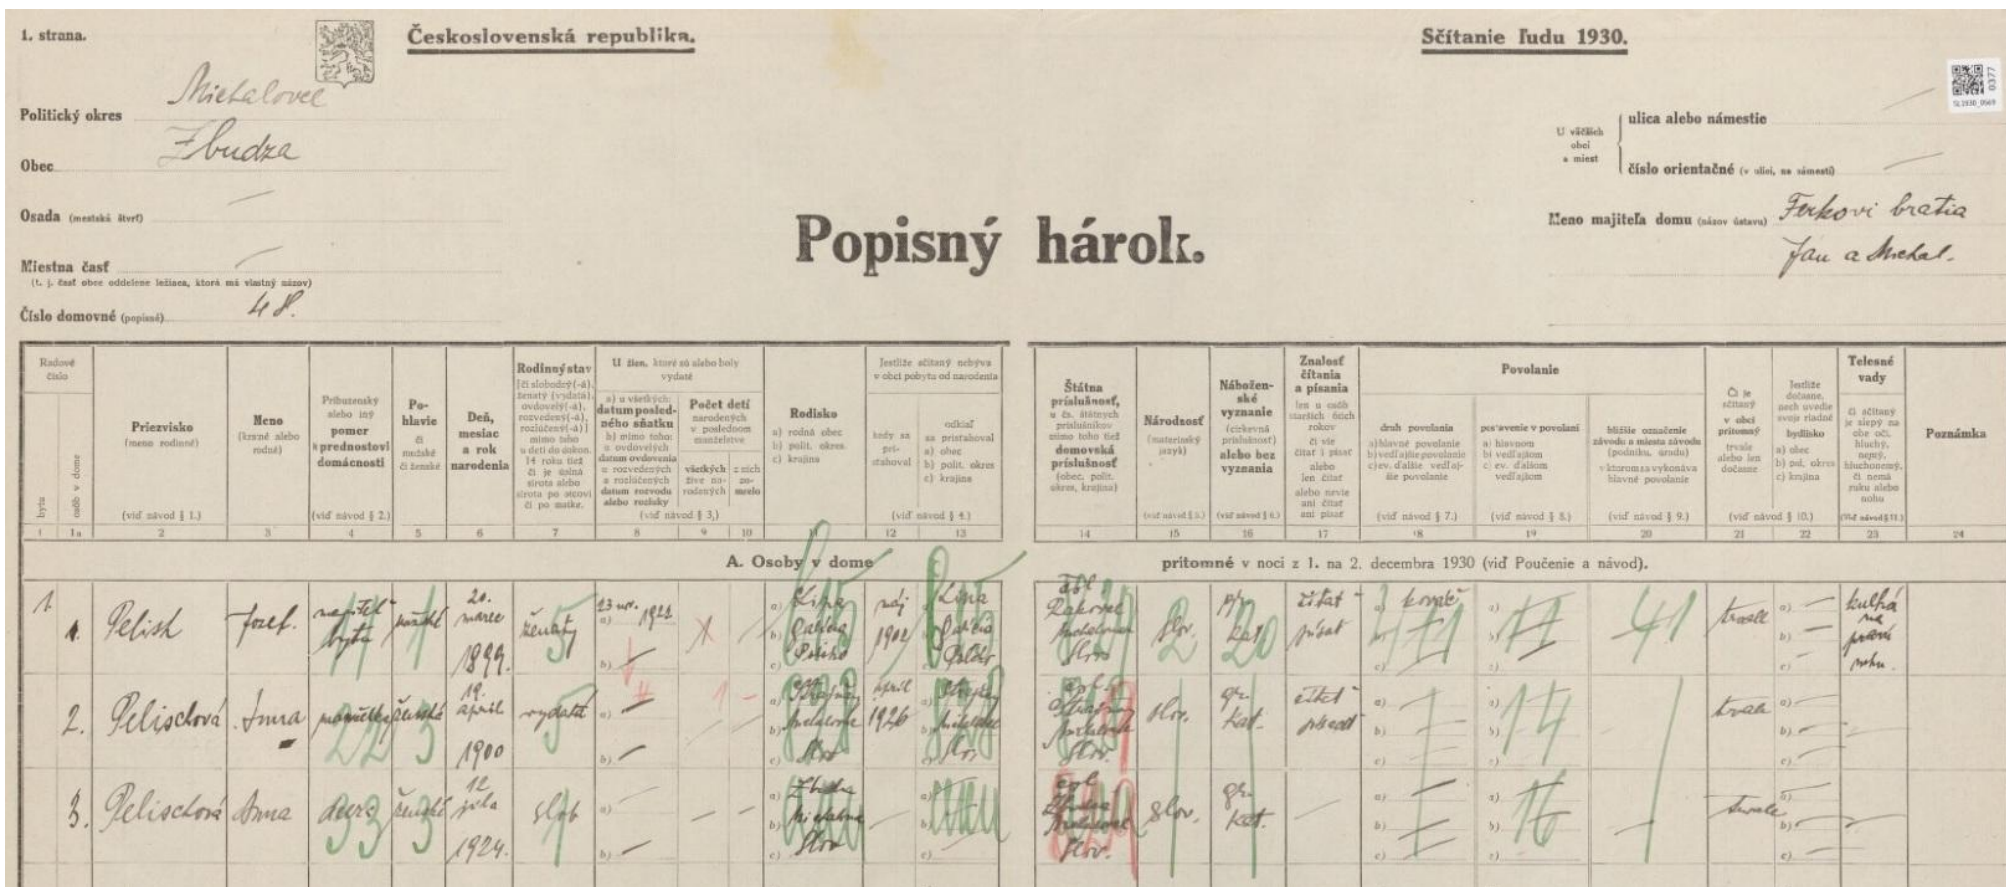 1. strana.
Československá republika.
Sčítanie ľudu 1930.
0377
SL1930_0669
Politický okres Michalovce
Obec Zbudza
Osada (mestská štvrť) —
Miestna časť —
(t. j. časť obce oddelene ležiaca, ktorá má vlastný názov)
Číslo domovné (popisné) 48.
U väčších obcí a miest
ulica alebo námestie —
číslo orientačné (v ulici, na námestí) —
Meno majiteľa domu (názov ústavu) Ferkovi bratia
Jan a Michal.
Popisný hárok.
Radové číslo
bytu
osôb v dome
Priezvisko
(meno rodinné)
(viď návod § 1.)
Meno
(krstné alebo rodné)
Príbuzenský alebo iný pomer k prednostovi domácnosti
(viď návod § 2.)
Pohlavie
či mužské či ženské
Deň, mesiac a rok narodenia
Rodinný stav
[či slobodný(-á), ženatý (vydatá), ovdovelý(-á), rozvedený(-á), rozlúčený(-á)] mimo toho u detí do dokon. 14 roku tiež či je úplná sirota alebo sirota po otcovi či po matke.
U žien, ktoré sú alebo boly vydaté
a) u všetkých: datum posledného sňatku
b) mimo toho: u ovdovelých datum ovdovenia u rozvedených a rozlúčených datum rozvodu alebo rozluky
Počet detí
narodených v poslednom manželstve
všetkých žive narodených
z nich zomrelo
(viď návod § 3,)
Rodisko
a) rodná obec
b) polit. okres
c) krajina
Jestliže sčítaný nebýva v obci pobytu od narodenia
kedy sa pristahoval
odkiaľ sa pristahoval
a) obec
b) polit. okres
c) krajina
(viď návod § 4.)
Štátna príslušnosť,
u čs. štátnych príslušníkov mimo toho tiež domovská príslušnosť
(obec, polit. okres, krajina)
Národnosť
(materinský jazyk)
(viď návod § 5.)
Náboženské vyznanie
(cirkevná príslušnosť)
alebo bez vyznania
(viď návod § 6.)
Znalosť čítania a písania
len u osôb starších 6tich rokov
či vie čítať i písať alebo len čítať alebo nevie ani čítať ani písať
Povolanie
druh povolania
a) hlavné povolanie
b) vedľajšie povolanie
c) ev. ďalšie vedľajšie povolanie
(viď návod § 7.)
postavenie v povolaní
a) hlavnom
b) vedľajšom
c) ev. ďalšom vedľajšom
(viď návod § 8.)
bližšie označenie závodu a miesta závodu
(podniku, úradu)
v ktorom sa vykonáva hlavné povolanie
(viď návod § 9.)
Či je sčítaný v obci prítomný trvale alebo len dočasne
Jestliže dočasne, nech uvedie svoje riadné bydlisko
a) obec
b) pol. okres
c) krajina
(viď návod § 10.)
Telesné vady
či sčítaný je slepý na obe oči, hluchý, nemý, hluchonemý, či nemá ruku alebo nohu
(Viď návod § 11.)
Poznámka
1 1a 2 3 4 5 6 7 8 9 10 11 12 13 14 15 16 17 18 19 20 21 22 23 24
A. Osoby v dome prítomné v noci z 1. na 2. decembra 1930 (viď Poučenie a návod).
1. 1. Pelish Jozef. majiteľ bytu 20. marec 1899. ženatý 1922 máj 1902 Michalovce Slov. slov. kat. čítať písať kováč trvale kulhá na pravú nohu.
2. Pelischová manželka ženská 19. apríl 1900 vydatá Michalovce Slov. apríl 1926 Slov. slov. gr. kat. čítať trvale
3. Pelischová Anna dcera ženská 12 júla 1924. slob Zbudza Michalovce Slov Zbudza Michalovce Slov. slov. gr. kat. trvale